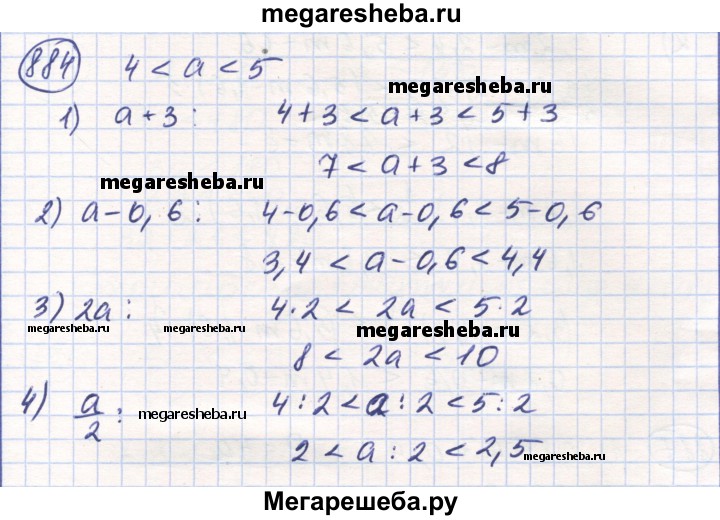 megaresheba.ru
884 4 < a < 5
megaresheba.ru
1) a + 3 : 4 + 3 < a + 3 < 5 + 3
7 < a + 3 < 8
megaresheba.ru
2) a - 0, 6 : 4 - 0,6 < a - 0, 6 < 5 - 0, 6
3,4 < a - 0,6 < 4,4
3) 2a : 4 · 2 < 2a < 5 · 2
megaresheba.ru megaresheba.ru megaresheba.ru
8 < 2a < 10
4) a/2 : 4 : 2 < a : 2 < 5 : 2
megaresheba.ru
2 < a : 2 < 2,5
megaresheba.ru
Мегарешеба.ру